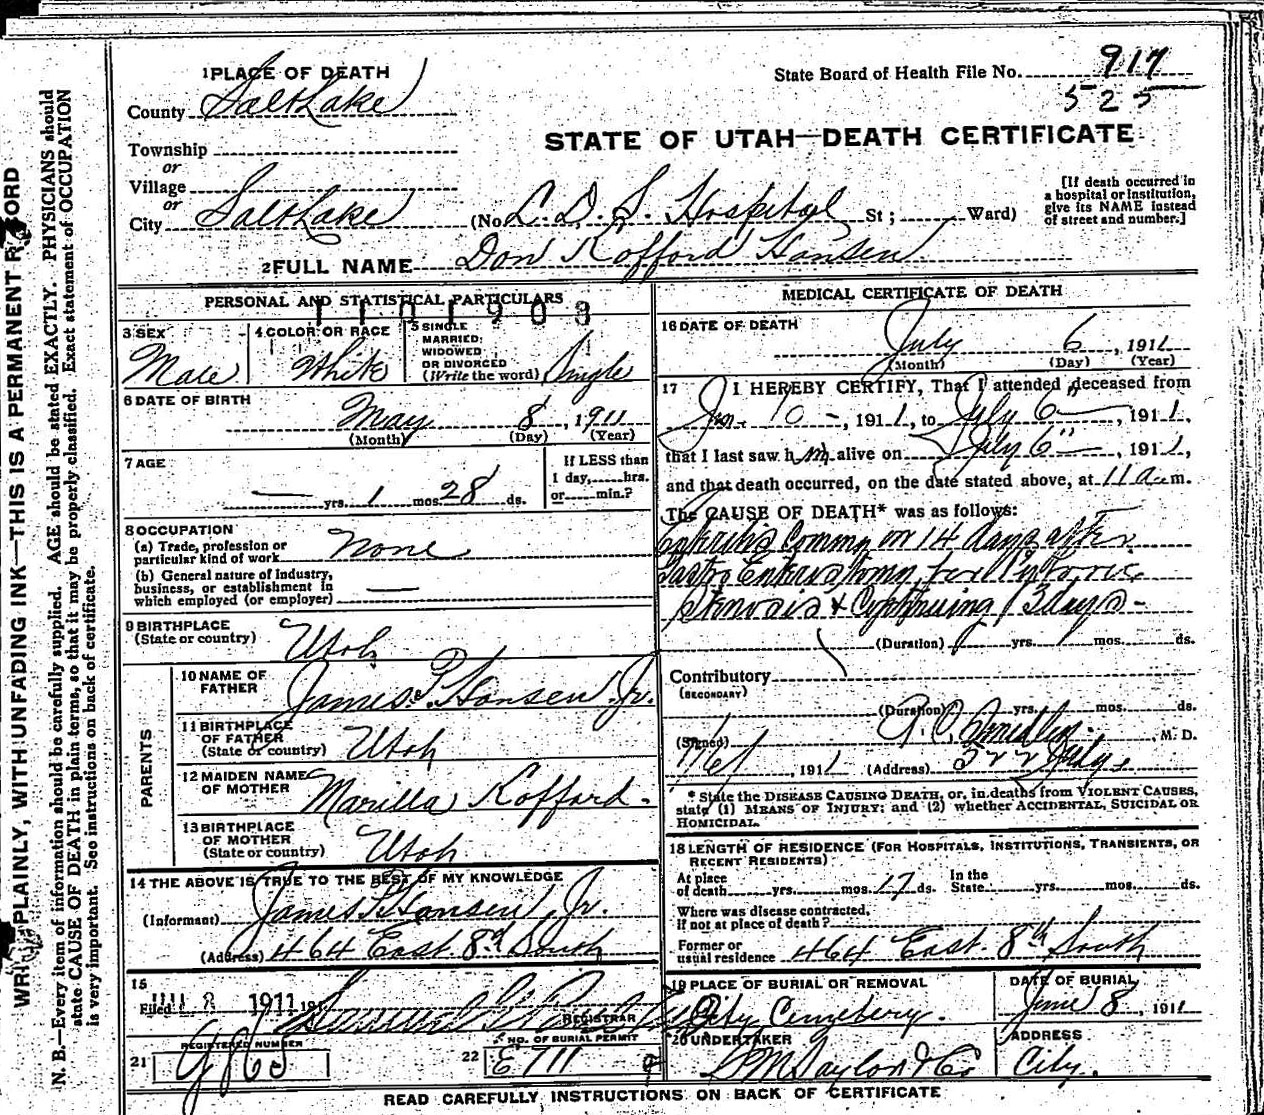 1 PLACE OF DEATH
State Board of Health File No. 917
525
County Salt Lake
STATE OF UTAH—DEATH CERTIFICATE
Township
or
Village
or
City Salt Lake (No. L. D. S. Hospital St; Ward)
[If death occurred in
a hospital or institution,
give its NAME instead
of street and number.]
2 FULL NAME Don Kofford Hansen
PERSONAL AND STATISTICAL PARTICULARS
1101903
3 SEX
Male
4 COLOR OR RACE
White
5 SINGLE
MARRIED
WIDOWED
OR DIVORCED
(Write the word) Single
6 DATE OF BIRTH
May 8, 1911
(Month) (Day) (Year)
7 AGE
— yrs. 1 mos. 28 ds.
If LESS than
1 day, hrs.
or min.?
8 OCCUPATION
(a) Trade, profession or
particular kind of work None
(b) General nature of industry,
business, or establishment in
which employed (or employer) —
9 BIRTHPLACE
(State or country) Utah
PARENTS
10 NAME OF
FATHER James P. Hansen Jr.
11 BIRTHPLACE
OF FATHER
(State or country) Utah
12 MAIDEN NAME
OF MOTHER Marilla Kofford.
13 BIRTHPLACE
OF MOTHER
(State or country) Utah
14 THE ABOVE IS TRUE TO THE BEST OF MY KNOWLEDGE
(Informant) James P Hansen, Jr.
(Address) 464 East 8th South
15
Filed JUL 8 1911 191
REGISTRAR
REGISTERED NUMBER
21
NO. OF BURIAL PERMIT
22 E 711
MEDICAL CERTIFICATE OF DEATH
16 DATE OF DEATH
July 6, 1911
(Month) (Day) (Year)
17 I HEREBY CERTIFY, That I attended deceased from
10 —, 1911, to July 6" —, 1911,
that I last saw h m alive on July 6" —, 1911,
and that death occurred, on the date stated above, at 11 a m.
The CAUSE OF DEATH* was as follows:
Coming on 14 days after
Gastro Enterostomy for
Stenosis & Continuing 3 days -
(Duration) yrs. mos. ds.
Contributory
(SECONDARY)
(Duration) yrs. mos. ds.
(Signed) M. D.
7/6/, 1911 (Address) 522 Judge
* State the DISEASE CAUSING DEATH, or, in deaths from VIOLENT CAUSES,
state (1) MEANS OF INJURY; and (2) whether ACCIDENTAL, SUICIDAL OR
HOMICIDAL.
18 LENGTH OF RESIDENCE (FOR HOSPITALS, INSTITUTIONS, TRANSIENTS, OR
RECENT RESIDENTS)
At place
of death yrs. mos. 17 ds.
In the
State yrs. mos. ds.
Where was disease contracted,
if not at place of death?
Former or
usual residence 464 East. 8th South
19 PLACE OF BURIAL OR REMOVAL
City Cemetery.
DATE OF BURIAL
June 8, 1911
20 UNDERTAKER
S. M. Taylor & Co
ADDRESS
City.
READ CAREFULLY INSTRUCTIONS ON BACK OF CERTIFICATE
WRITE PLAINLY, WITH UNFADING INK—THIS IS A PERMANENT RECORD
N. B.—Every item of information should be carefully supplied. AGE should be stated EXACTLY. PHYSICIANS should
state CAUSE OF DEATH in plain terms, so that it may be properly classified. Exact statement of OCCUPATION
is very important. See instructions on back of certificate.